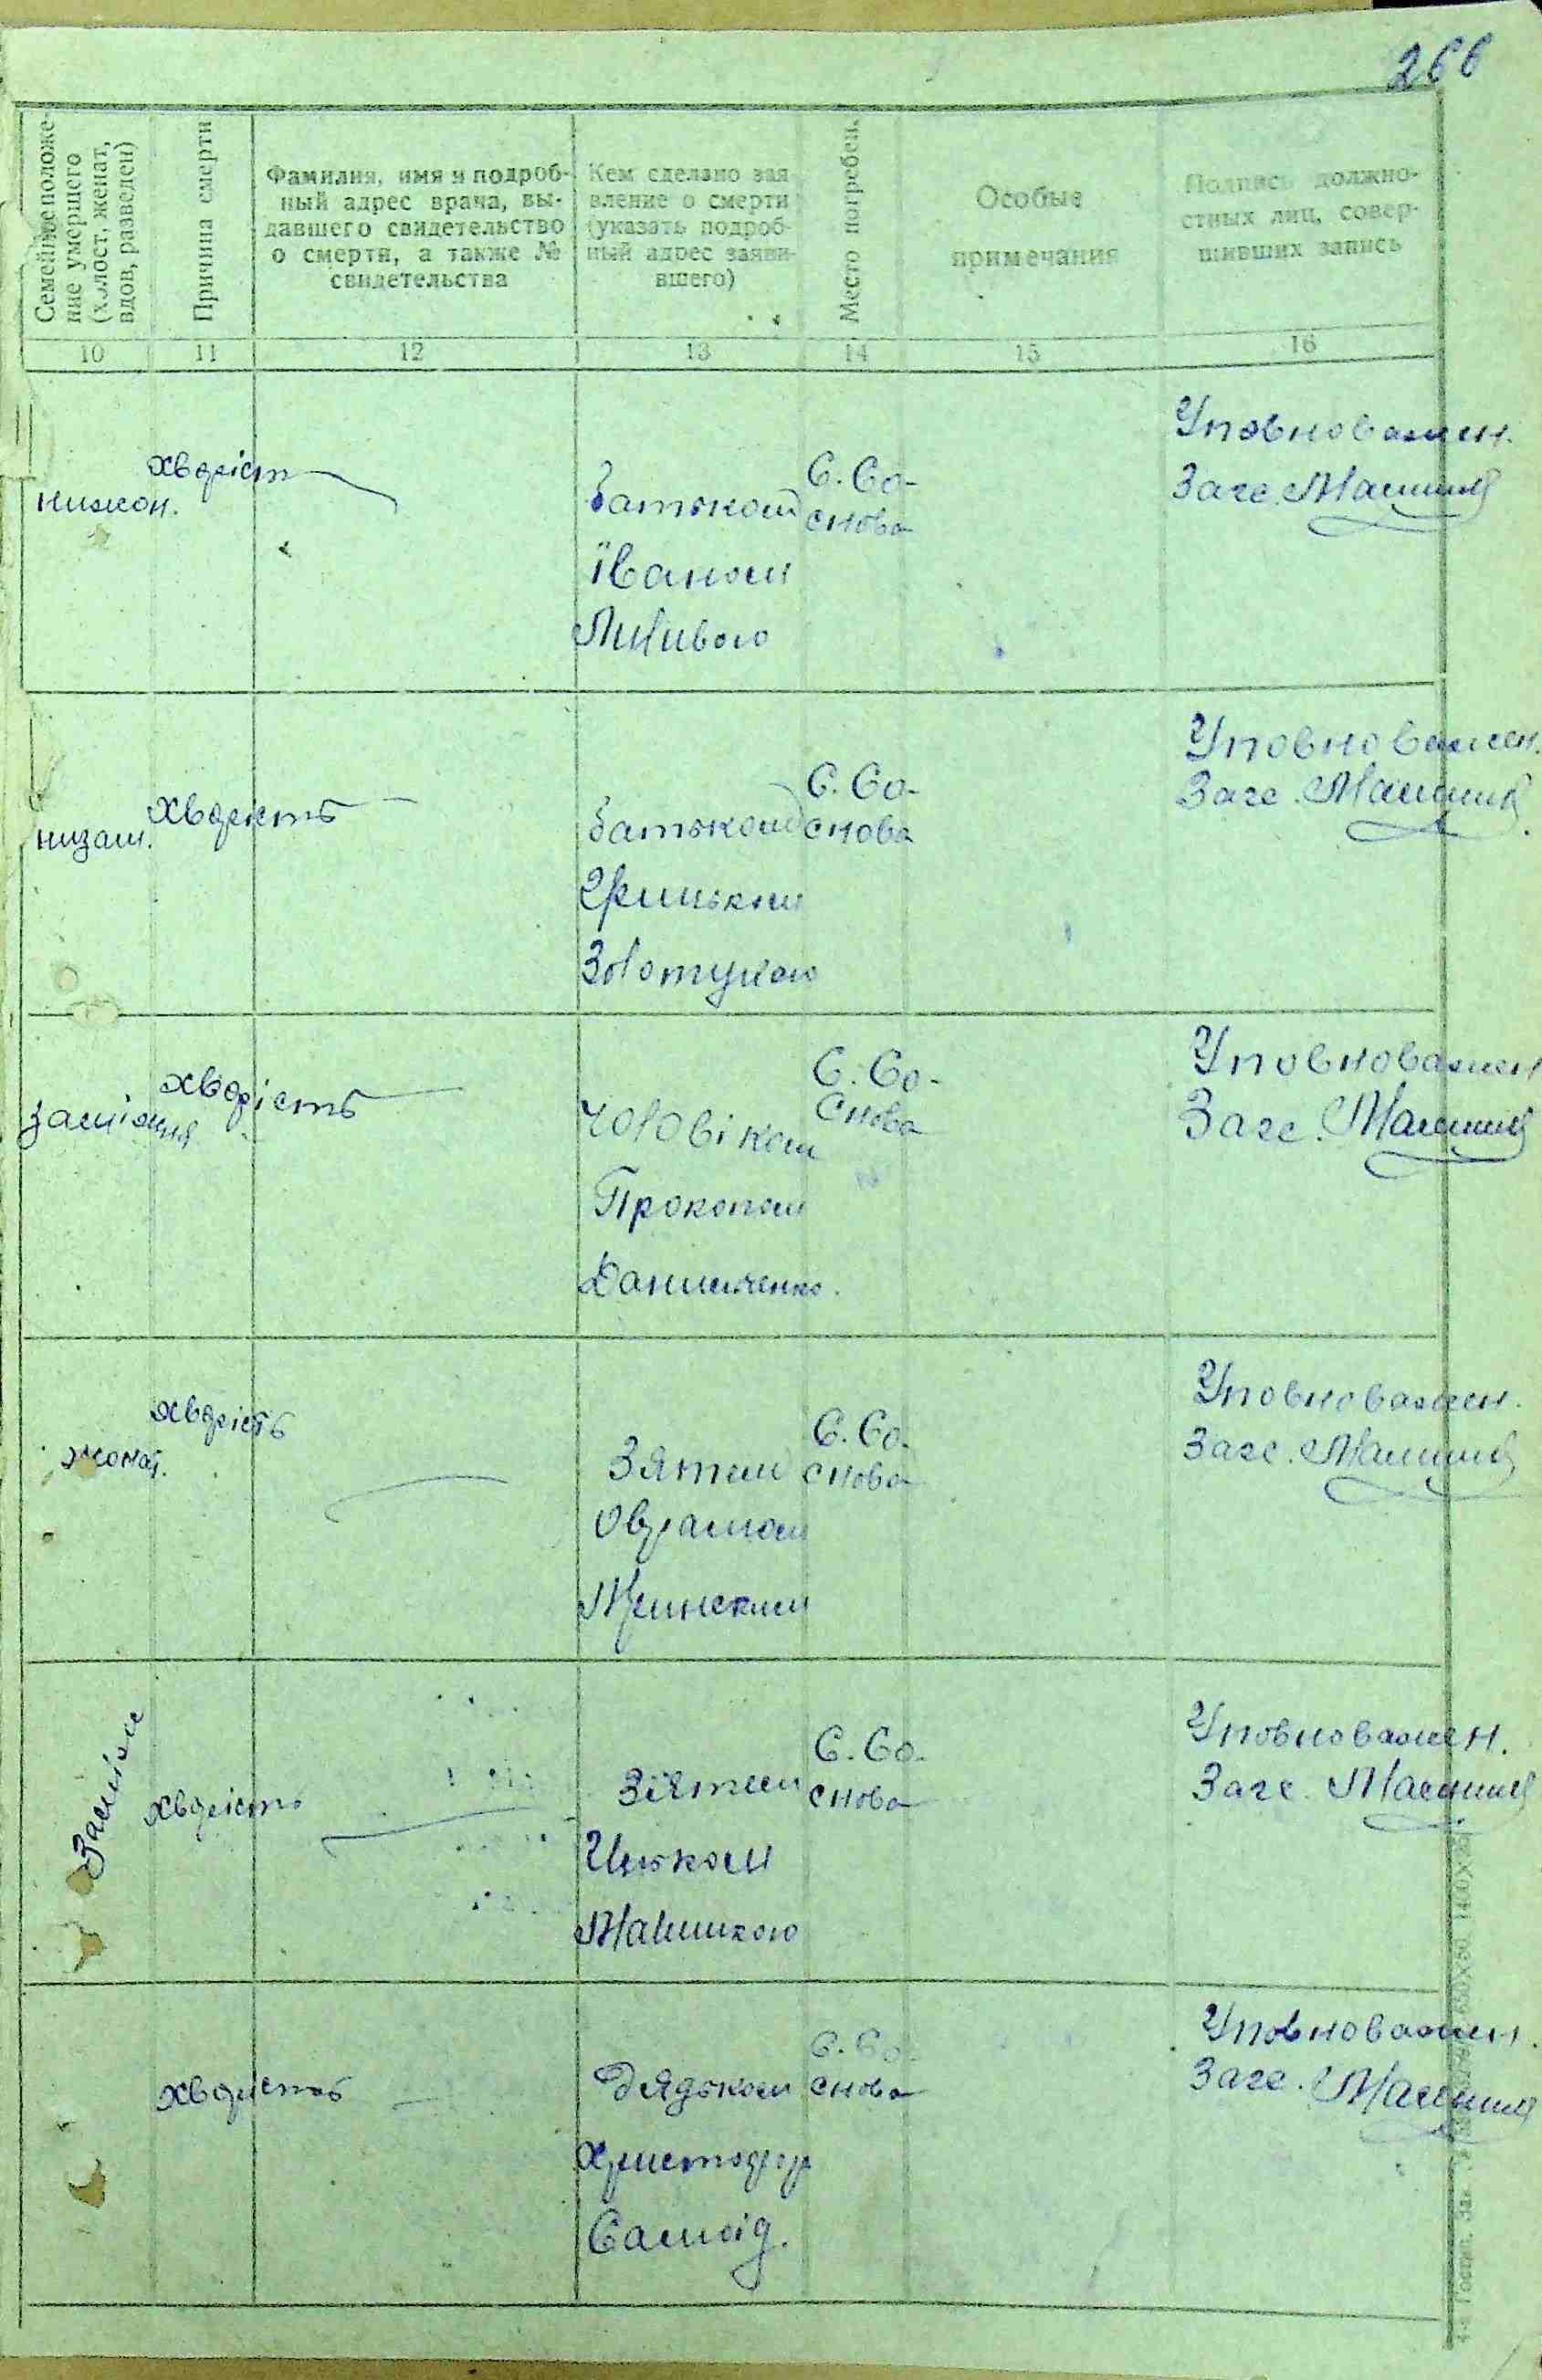 266
Семейное положе-
ние умершего
(холост, женат,
вдов, разведен)
Причина смерти
Фамилия, имя и подроб-
ный адрес врача, вы-
давшего свидетельство
о смерти, а также №
свидетельства
Кем сделано зая
вление о смерти
(указать подроб-
ный адрес заяви-
вшего)
Место погребен.
Особые
примечания
Подпись должно-
стных лиц, совер-
шивших запись
10 11 12 13 14 15 16
хворіст
батьком
Іваном
С. Со-
снова
Уповноважен.
Загс.
низам.
хвористь
батьком
Гриньком
Золотухою
С. Со-
снова
Уповноважен.
Загс.
заміжня
хворість
чоловіком
Прокопом
С. Со-
снова
Уповноважен
Загс.
жонат.
хворість
Зятем
Оврамом
С. Со-
снова
Уповноважен.
Загс.
Заміж
хворість
Зятем
С. Со-
снова
Уповноважен.
Загс.
хвористь
Дядьком
Христофор
Самоід.
С. Со-
снова
Уповноважен.
Загс.